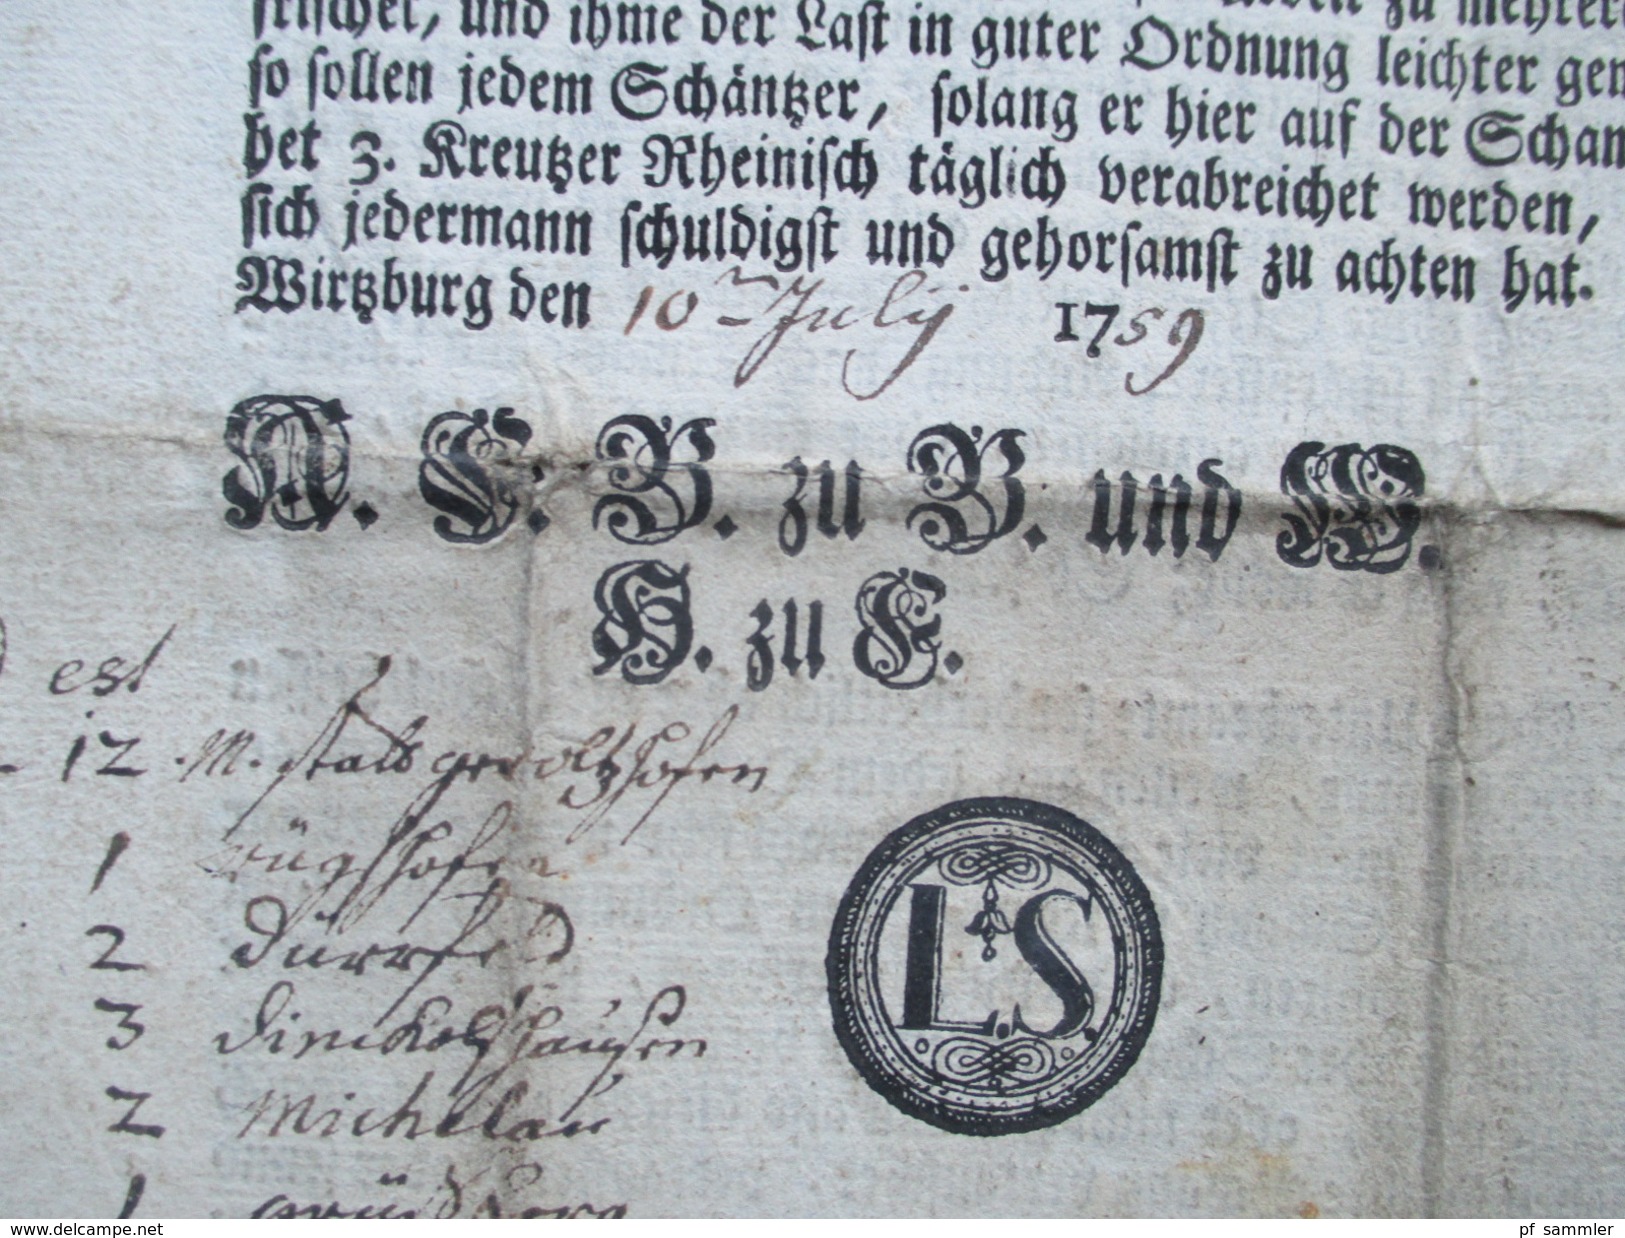 frischet, und ihme der Last in guter Ordnung leichter
so sollen jedem Schäntzer, solang er hier auf der
bet 3. Kreutzer Rheinisch täglich verabreichet werden,
sich jedermann schuldigst und gehorsamst zu achten hat.
Wirtzburg den 10ten July 1759
A. F. B. zu B. und W.
H. zu F.
est
12 M. Stadt geroltzhofen
1 rügshofen
2 Dürrfeld
3 Dinckolshausen
2 Michelau
1
L.S.
www.delcampe.net
pf_sammler